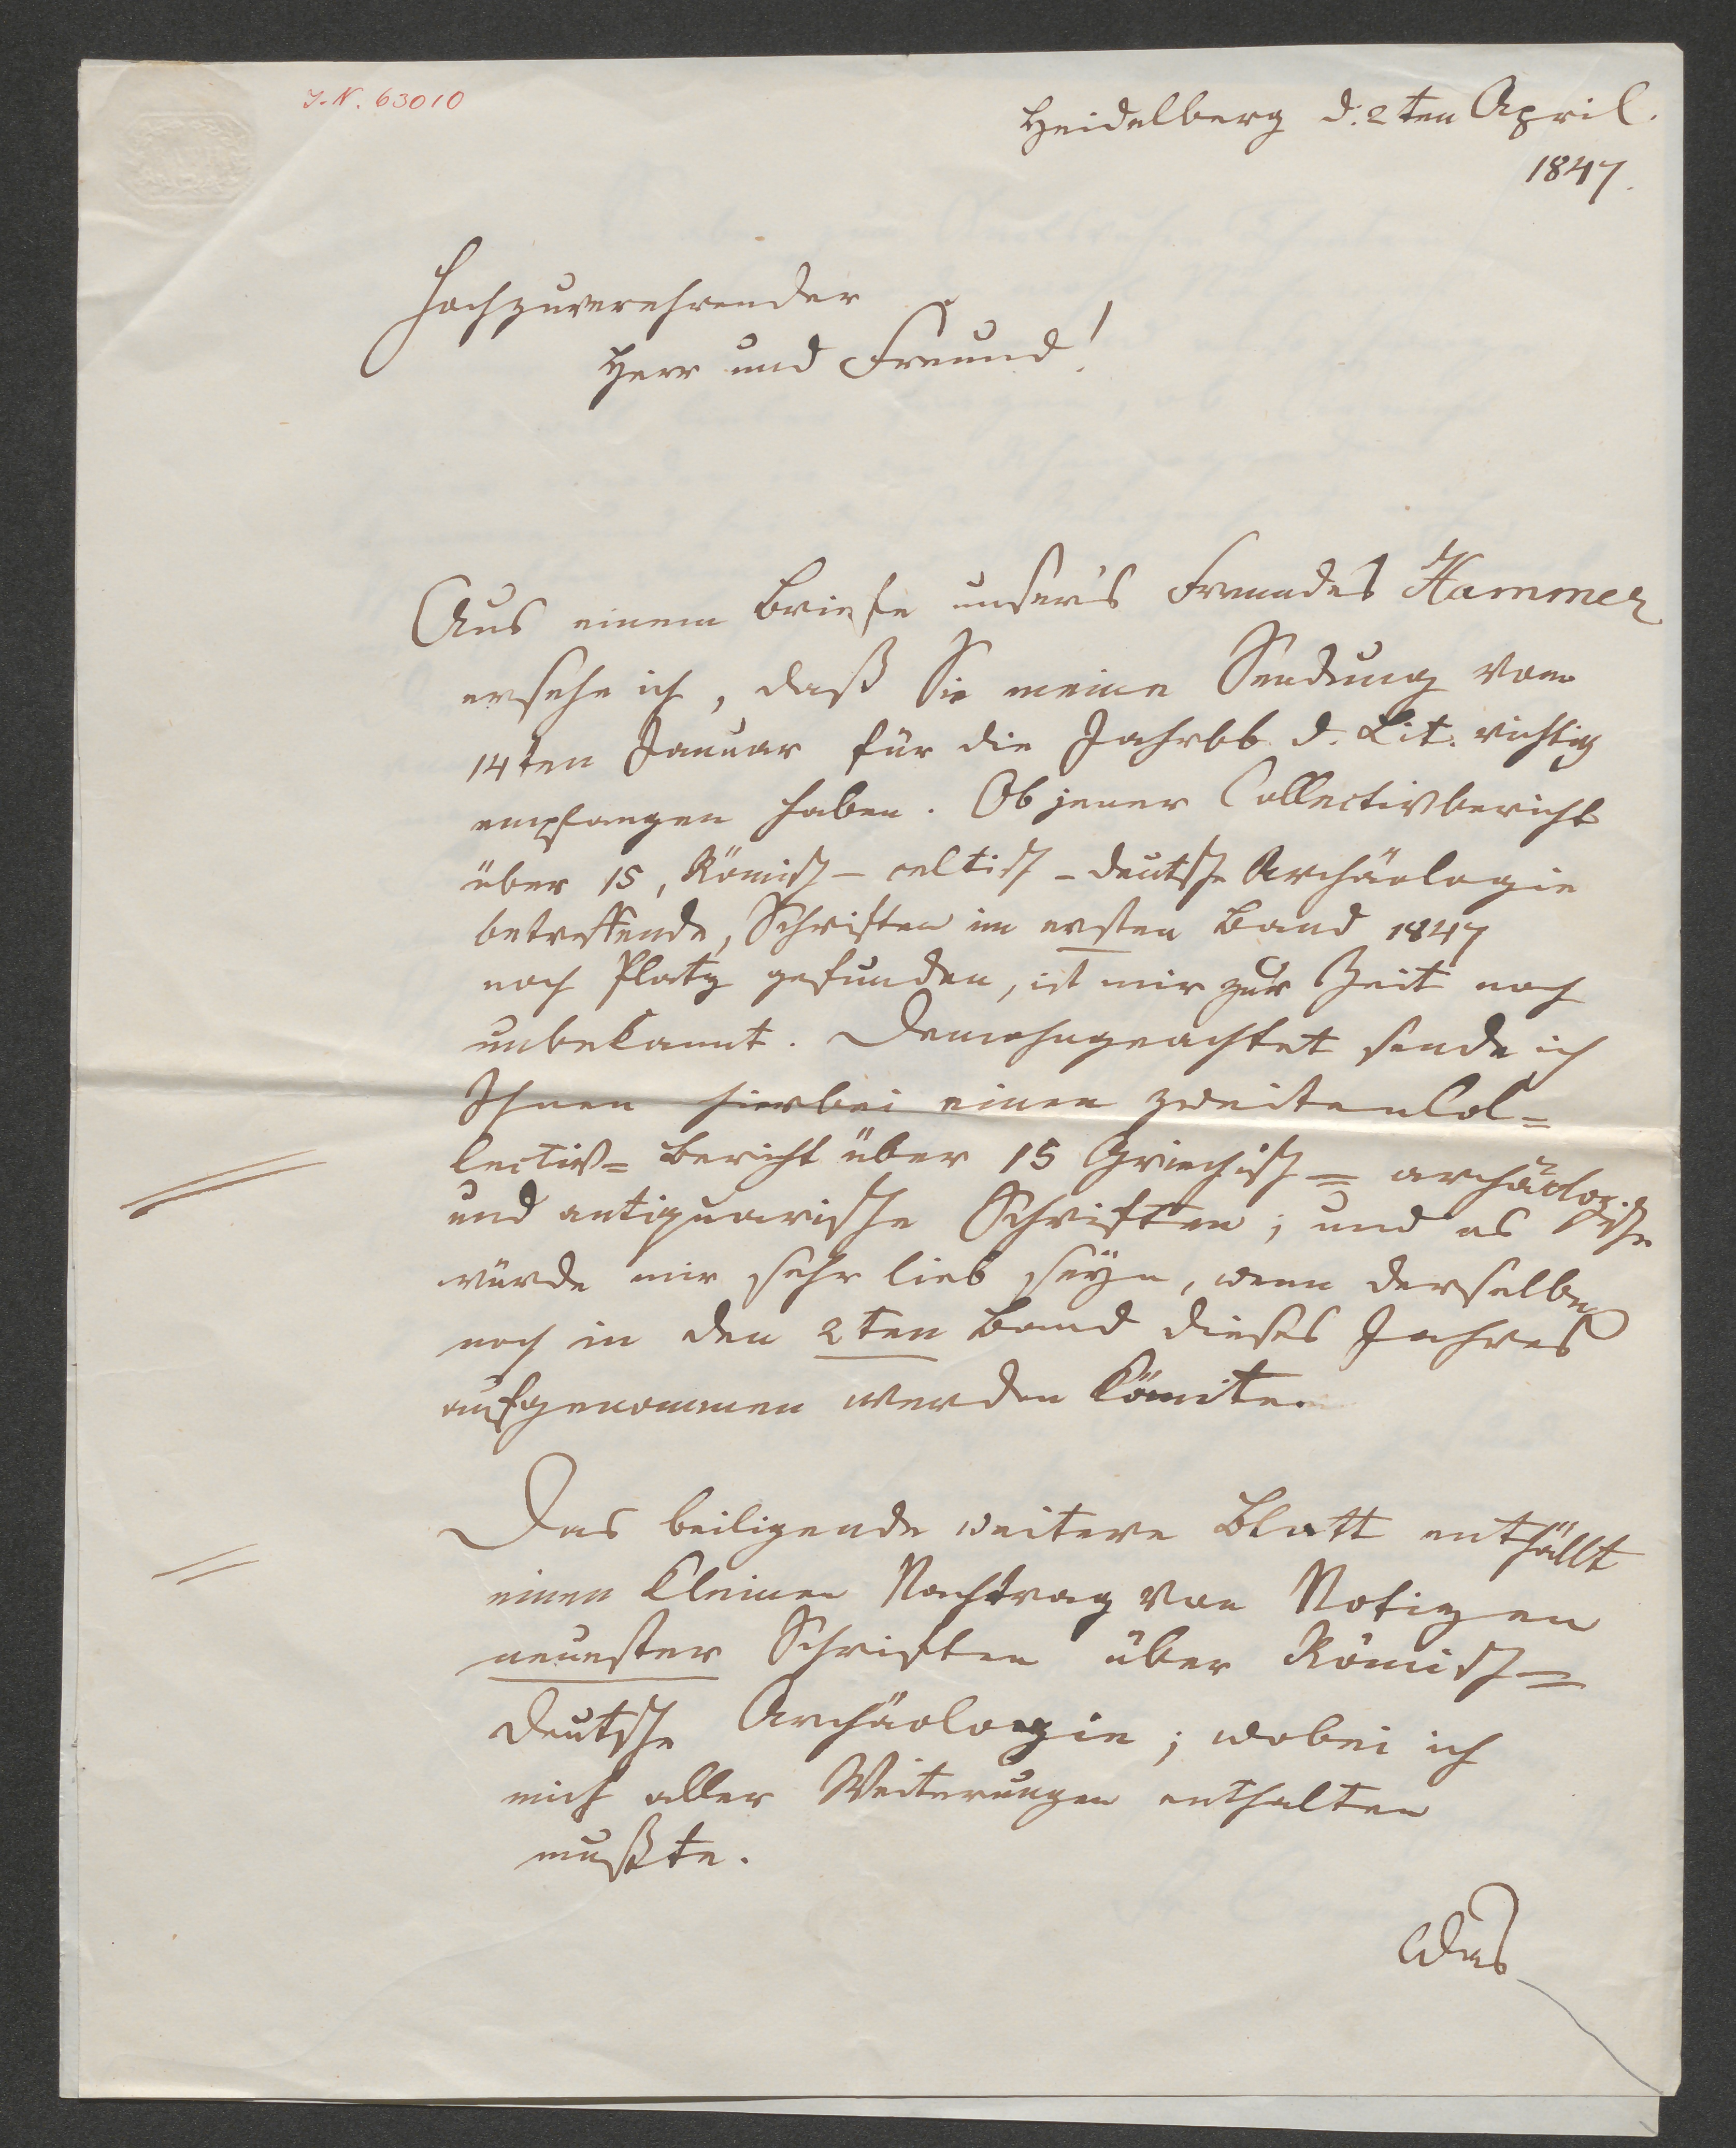 J.N. 63010
Heidelberg d. 2ten April.
1847.
Hochzuverehrender
Herr und Freund!
Aus einem Briefe unsers Freundes Hammer
ersehe ich, daß Sie meine Sendung vom
14ten Januar für die Jahrbb. d. Lit. richtig
empfangen haben. Ob jener Collectivbericht
über 15, Römisch-celtisch-deutsche Archäologie
betreffende, Schriften im ersten Band 1847
noch Platz gefunden, ist mir zur Zeit noch
unbekannt. Demohngeachtet sende ich
Ihnen hierbei einen zweiten Col=
lectiv=Bericht über 15 Griechisch=archäologische
und antiquarische Schriften; und es
würde mir sehr lieb seyn, wenn derselbe
noch in den 2ten Band dieses Jahres
aufgenommen werden könnte.
Das beiligende weitere Blatt enthällt
einen kleinen Nachtrag von Notizen
neuester Schriften über Römisch=
deutsche Archäologie; wobei ich
mich aller Weiterungen enthalten
mußte.
Das